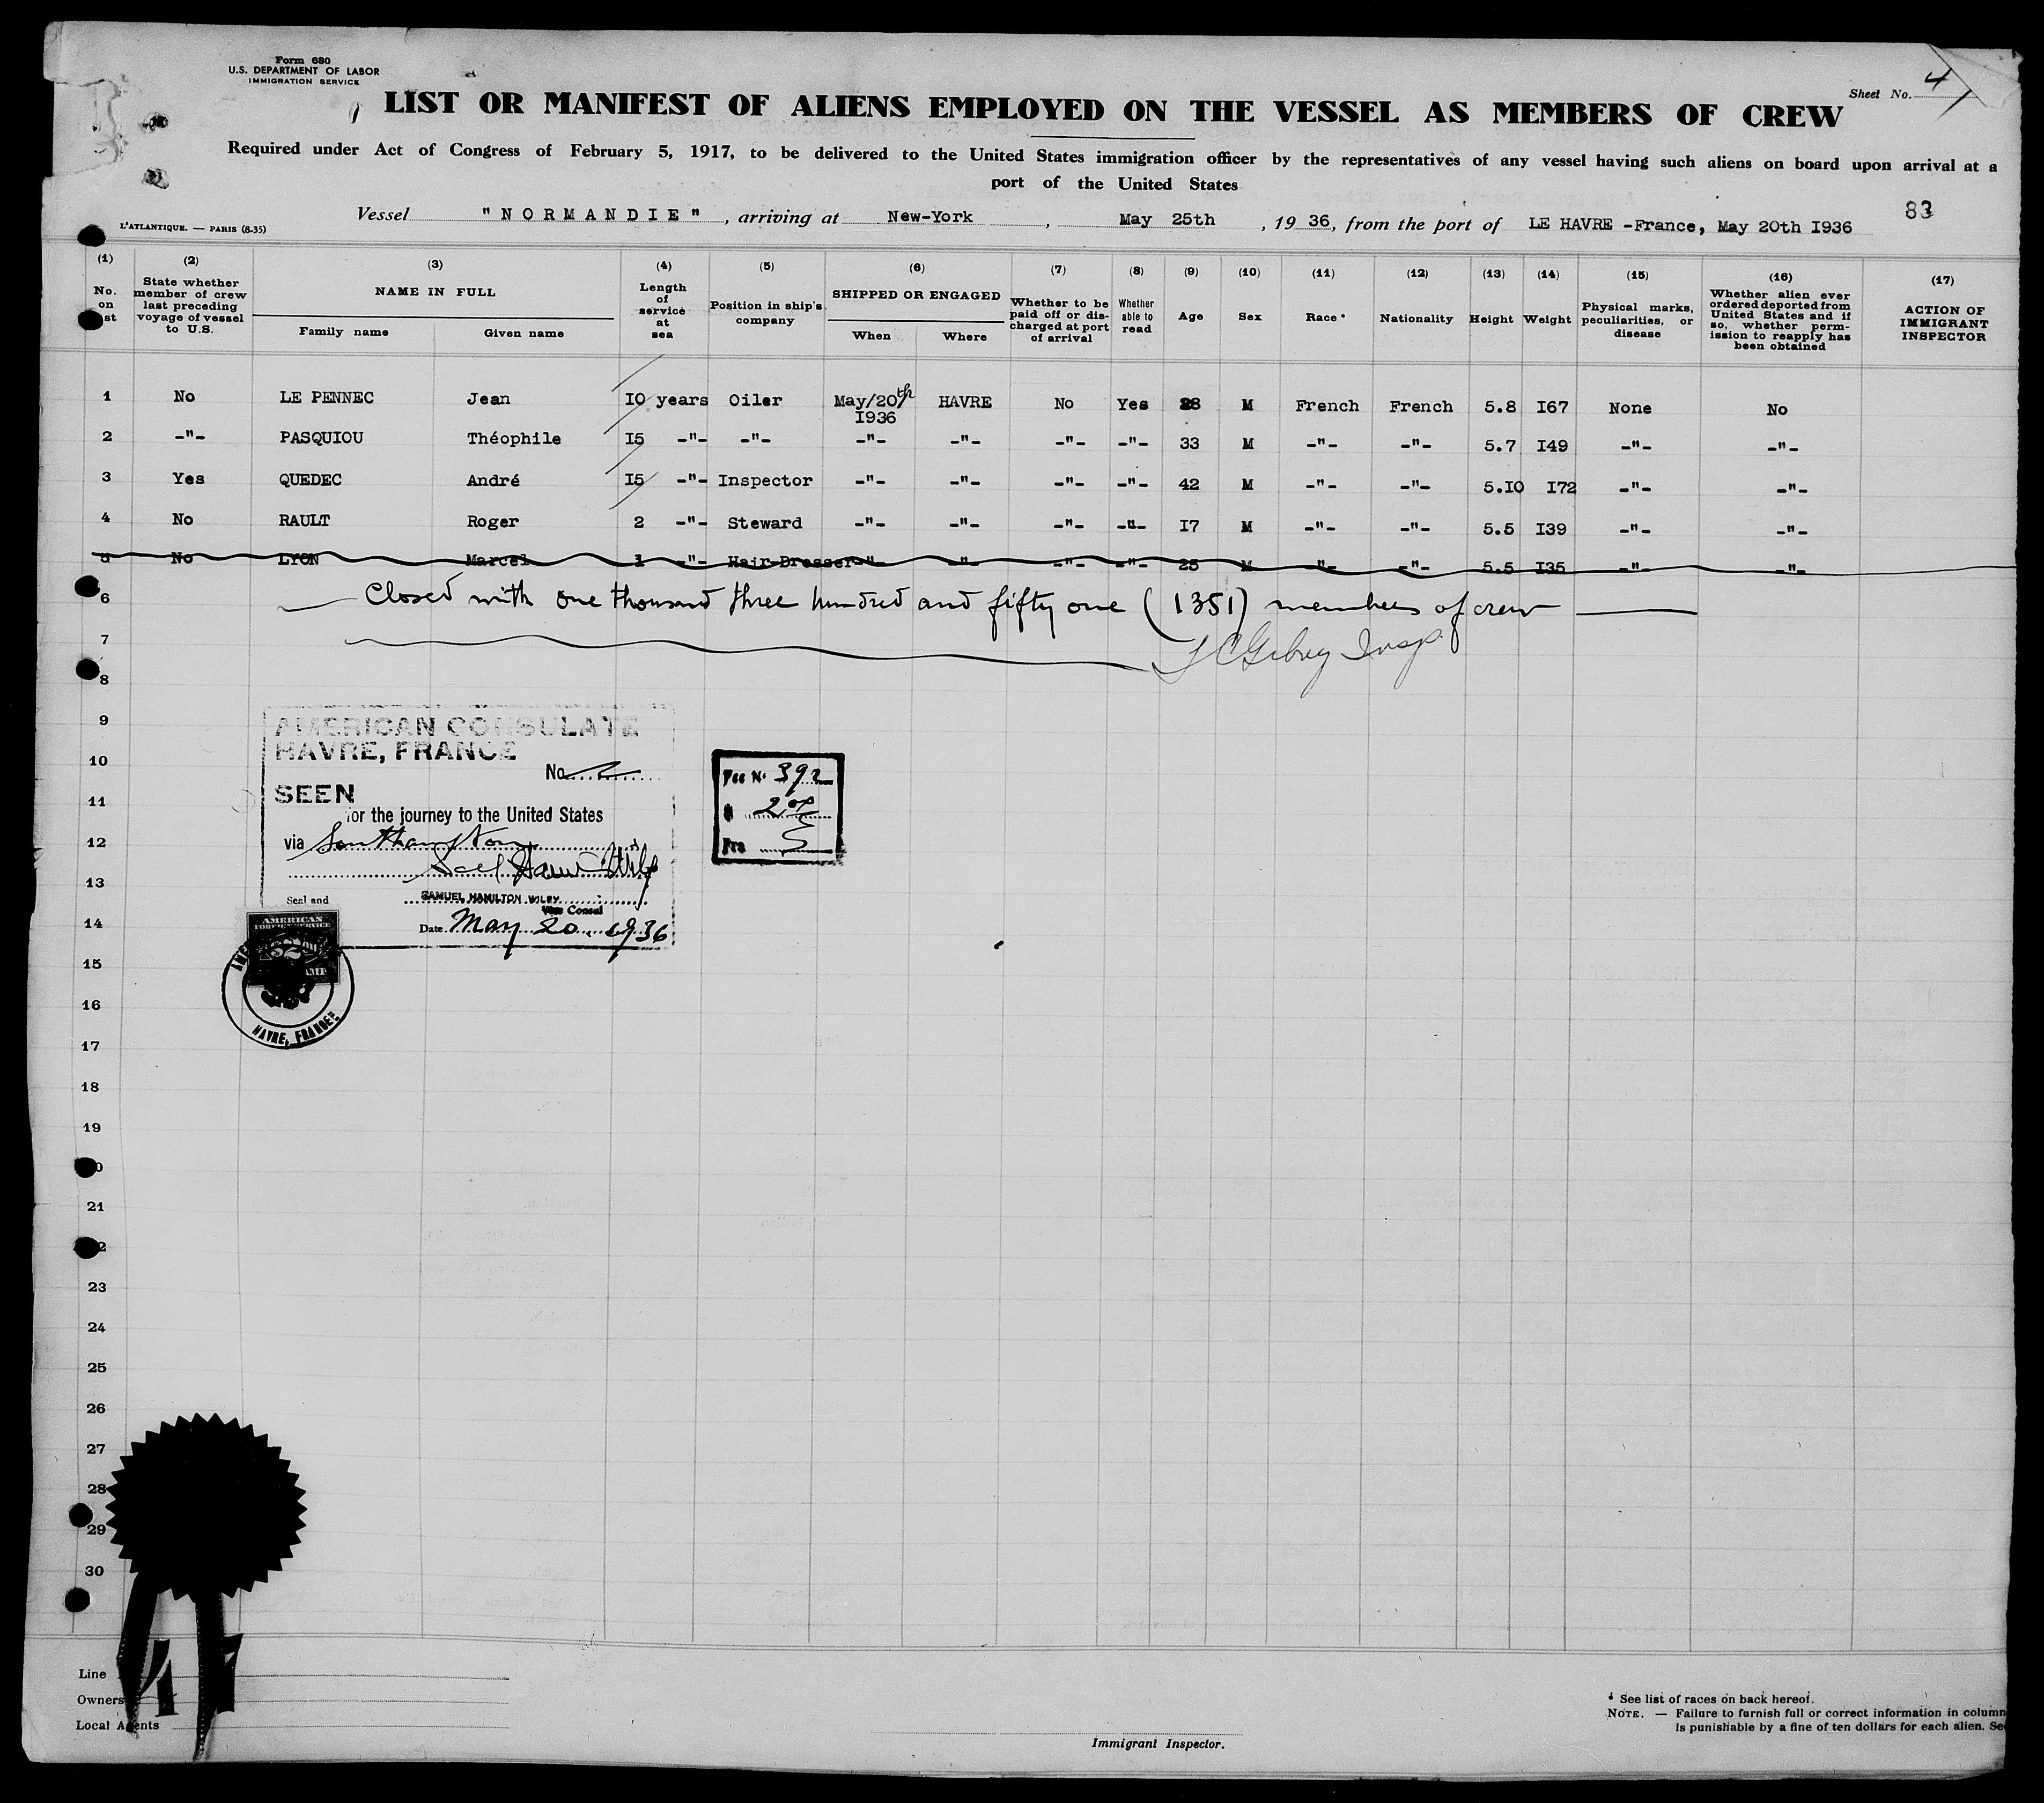 Form 680
U.S. DEPARTMENT OF LABOR
IMMIGRATION SERVICE
Sheet No. 4
LIST OR MANIFEST OF ALIENS EMPLOYED ON THE VESSEL AS MEMBERS OF CREW
Required under Act of Congress of February 5, 1917, to be delivered to the United States immigration officer by the representatives of any vessel having such aliens on board upon arrival at a
port of the United States
Vessel "NORMANDIE", arriving at New-York, May 25th, 1936, from the port of LE HAVRE -France, May 20th I936
83
L'ATLANTIQUE. — PARIS (8-35)
(1) (2) (3) (4) (5) (6) (7) (8) (9) (10) (11) (12) (13) (14) (15) (16) (17)
No. on
State whether member of crew last preceding voyage of vessel to U.S.
NAME IN FULL
Family name Given name
Length of service at sea
Position in ship's company
SHIPPED OR ENGAGED
When Where
Whether to be paid off or discharged at port of arrival
Whether able to read
Age
Sex
Race *
Nationality
Height
Weight
Physical marks, peculiarities, or disease
Whether alien ever ordered deported from United States and if so, whether permission to reapply has been obtained
ACTION OF IMMIGRANT INSPECTOR
1 No LE PENNEC Jean I0 years Oiler May/20th I936 HAVRE No Yes 28 M French French 5.8 I67 None No
2 -"- PASQUIOU Théophile I5 -"- -"- -"- -"- -"- -"- 33 M -"- -"- 5.7 I49 -"- -"-
3 Yes QUEDEC André I5 -"- Inspector -"- -"- -"- -"- 42 M -"- -"- 5.I0 I72 -"- -"-
4 No RAULT Roger 2 -"- Steward -"- -"- -"- -"- I7 M -"- -"- 5.5 I39 -"- -"-
5 No LYON Marcel 1 -"- Hair-Dresser -"- -"- -"- -"- 25 M -"- -"- 5.5 I35 -"- -"-
6 Closed with one thousand three hundred and fifty one (1351) members of crew
7
Insp.
8
9
AMERICAN CONSULATE
HAVRE, FRANCE
10
No. 2
Fee No 392
SEEN
11
for the journey to the United States
$ 2.00
12
via Southampton
Frs
13
Seal and
SAMUEL HAMILTON WILEY
Vice Consul
14
Date May 20 1936
AMERICAN
FOREIGN SERVICE
15
16
HAVRE, FRANCE
17
18
19
21
23
24
25
26
27
28
29
30
Line
Owners
Local Agents
Immigrant Inspector.
* See list of races on back hereof.
NOTE. — Failure to furnish full or correct information in column
is punishable by a fine of ten dollars for each alien.